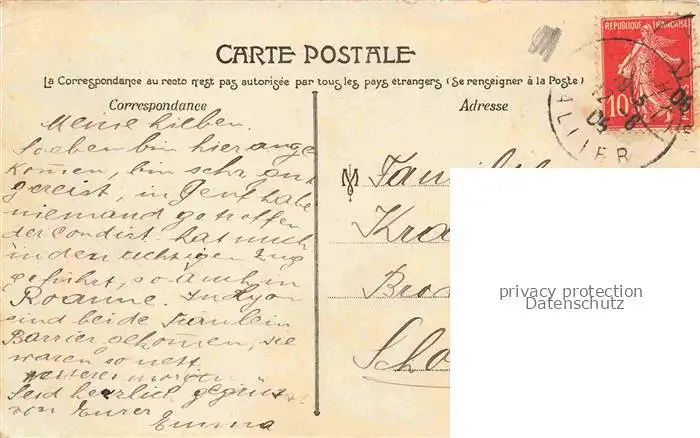 CARTE POSTALE
La Correspondance au recto n'est pas autorisée par tous les pays étrangers (Se renseigner à la Poste)
Correspondance
Meine Lieben.
Soeben bin hier ange
komen, bin sehr gut
gereist, in Genf habe
niemand getroffen
der Condirt. hat mich
in den richtigen Zug
geführt, so auch in
Roanne. In Lyon
sind beide Fräulein
Barrier gekomen, sie
waren so nett.
morgen
Seid herzlich gegrüsst
von Eurer
Emma
Adresse
M Familie
Kra
Bro
Scho
REPUBLIQUE FRANÇAISE
10
ALLIER
privacy protection
Datenschutz